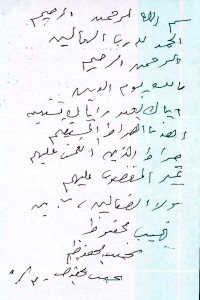 بسم الله الرحمن الرحيم
الحمد لله رب العالمين
الرحمن الرحيم
مالك يوم الدين
اياك نعبد واياك نستعين
اهدنا الصراط المستقيم
صراط الذين انعمت عليهم
غير المغضوب عليهم
ولا الضالين
نجيب محفوظ
نجيب محفوظ
نجيب محفوظ